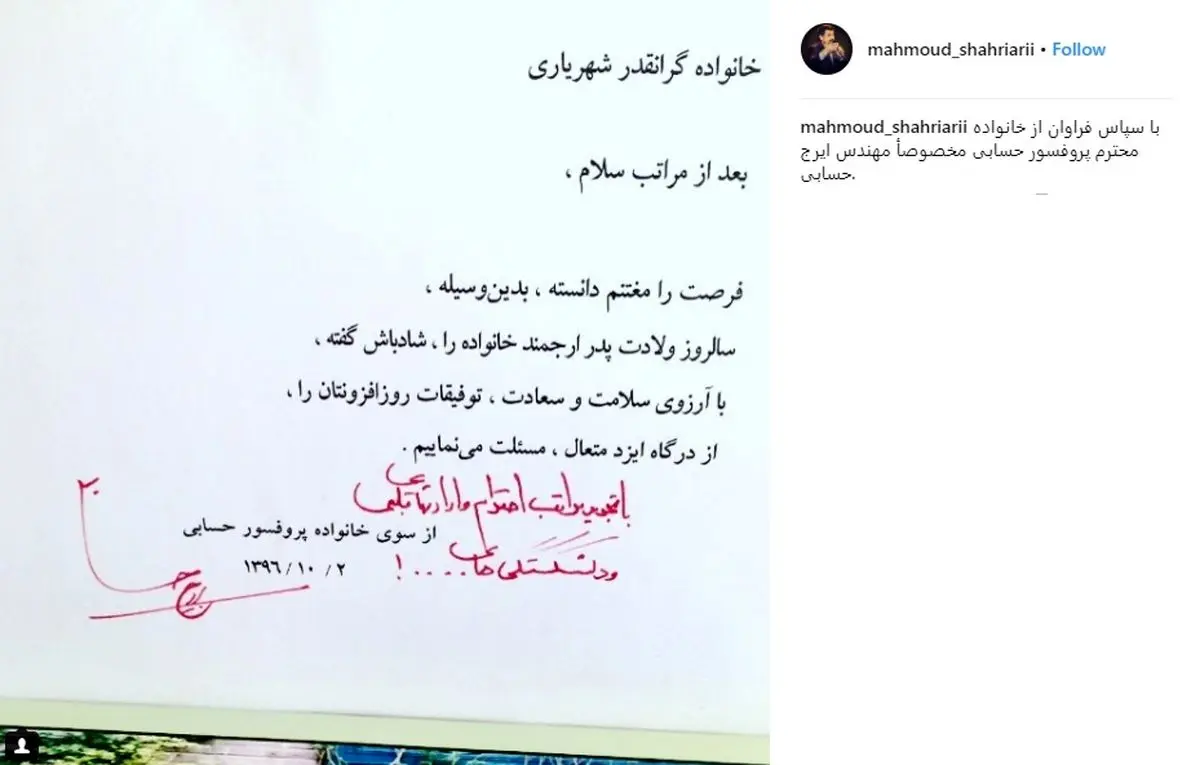 خانواده گرانقدر شهریاری
بعد از مراتب سلام ،
فرصت را مغتنم دانسته ، بدین‌وسیله ،
سالروز ولادت پدر ارجمند خانواده را ، شادباش گفته ،
با آرزوی سلامت و سعادت ، توفیقات روزافزونتان را ،
از درگاه ایزد متعال ، مسئلت می‌نماییم .
با تجدید مراتب احترام و ارادتهای قلبی
از سوی خانواده پروفسور حسابی
و دلشکستگی های .... !
۱۳۹٦/۱۰/۲
mahmoud_shahriarii • Follow
mahmoud_shahriarii با سپاس فراوان از خانواده
محترم پروفسور حسابی مخصوصأ مهندس ایرج
حسابی.